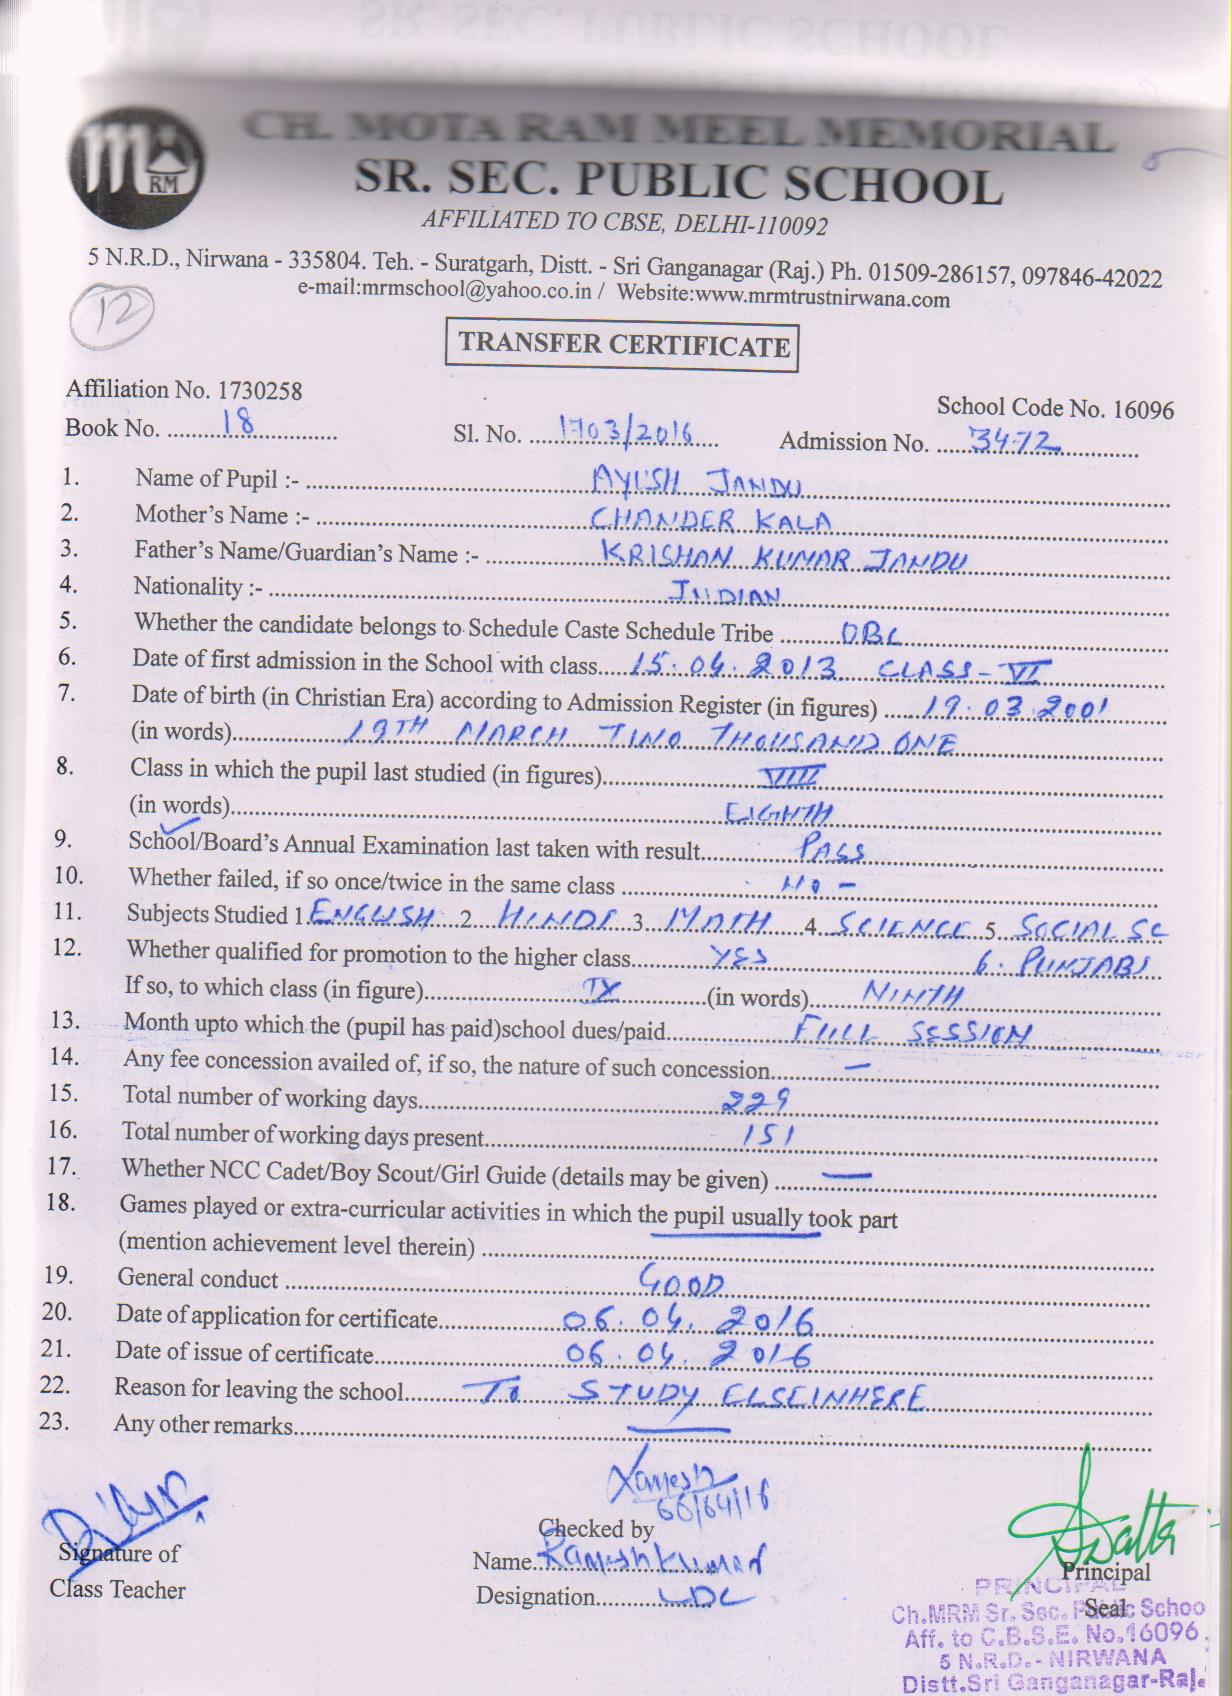 CH. MOTA RAM MEEL MEMORIAL
RM
SR. SEC. PUBLIC SCHOOL
AFFILIATED TO CBSE, DELHI-110092
5 N.R.D., Nirwana - 335804. Teh. - Suratgarh, Distt. - Sri Ganganagar (Raj.) Ph. 01509-286157, 097846-42022
e-mail:mrmschool@yahoo.co.in / Website:www.mrmtrustnirwana.com
12
TRANSFER CERTIFICATE
Affiliation No. 1730258 School Code No. 16096
Book No. 18 Sl. No. 1703/2016 Admission No. 3472
1. Name of Pupil :- AYUSH JANDU
2. Mother's Name :- CHANDER KALA
3. Father's Name/Guardian's Name :- KRISHAN KUMAR JANDU
4. Nationality :- INDIAN
5. Whether the candidate belongs to Schedule Caste Schedule Tribe OBC
6. Date of first admission in the School with class 15.04.2013 CLASS-VI
7. Date of birth (in Christian Era) according to Admission Register (in figures) 19.03.2001
(in words) 19TH MARCH TWO THOUSAND ONE
8. Class in which the pupil last studied (in figures) VIII
(in words) EIGHTH
9. School/Board's Annual Examination last taken with result PASS
10. Whether failed, if so once/twice in the same class NO -
11. Subjects Studied 1 ENGLISH 2 HINDI 3 MATH 4 SCIENCE 5 SOCIAL SC
12. Whether qualified for promotion to the higher class YES 6. PUNJABI
If so, to which class (in figure) IX (in words) NINTH
13. Month upto which the (pupil has paid)school dues/paid FULL SESSION
14. Any fee concession availed of, if so, the nature of such concession —
15. Total number of working days 229
16. Total number of working days present 151
17. Whether NCC Cadet/Boy Scout/Girl Guide (details may be given) —
18. Games played or extra-curricular activities in which the pupil usually took part
(mention achievement level therein)
19. General conduct GOOD
20. Date of application for certificate 06.04.2016
21. Date of issue of certificate 06.04.2016
22. Reason for leaving the school TO STUDY ELSEWHERE
23. Any other remarks —
Ramesh
06/04/16
Signature of
Class Teacher
Checked by
Name Ramesh Kumar
Designation LDC
Principal
Seal
PRINCIPAL
Ch.MRM Sr. Sec. Public Schoo
Aff. to C.B.S.E. No.16096
5 N.R.D.- NIRWANA
Distt.Sri Ganganagar-Raj.